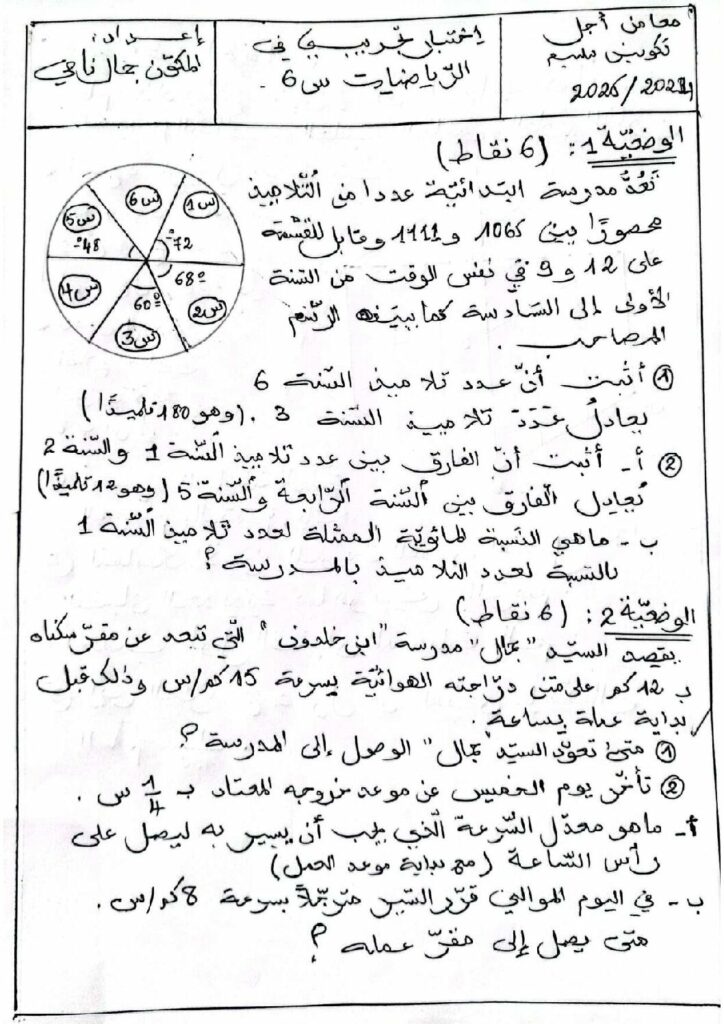 معا من أجل
تكوين سليم
2025/2024
اختبار تجريبي في
الرياضيات س 6
إعداد:
المكوّن جمال ناجي
الوضعيّة 1: (6 نقاط)
تَعُدُّ مدرسة ابتدائيّة عددا من التّلاميذ
محصورًا بين 1065 و 1111 وقابل للقسمة
على 12 و 9 في نفس الوقت من السّنة
الأولى إلى السّادسة كما يبيّنه الرّسم
المصاحب.
س 6
س 1
س 5
48°
72°
68°
س 4
60°
س 2
س 3
① أثبت أنّ عدد تلاميذ السّنة 6
يعادلُ عَدَدَ تلاميذ السّنة 3. (وهو 180 تلميذًا)
② أ- أثبت أنّ الفارق بين عدد تلاميذ السّنة 1 والسّنة 2
يُعادِل الفارق بين السّنة الرّابعة والسّنة 5 (وهو 12 تلميذًا)
ب- ماهي النّسبة المائويّة الممثلة لعدد تلاميذ السّنة 1
بالنّسبة لعدد التلاميذ بالمدرسة؟
الوضعيّة 2: (6 نقاط)
يقصد السيّد "جمال" مدرسة "ابن خلدون" الّتي تبعد عن مقرّ سكناه
ب 12 كم على متن درّاجته الهوائيّة بسرعة 15 كم/س وذلك قبل
بداية عمله بساعة.
① متى تعوّد السيّد "جمال" الوصول إلى المدرسة؟
② تأخّر يوم الخميس عن موعد خروجه المعتاد ب 1/4 س.
أ- ماهو معدّل السّرعة الّذي يجب أن يسير به ليصل على
رأس السّاعة (مع بداية موعد العمل)
ب- في اليوم الموالي قرّر السّير مترجّلاً بسرعة 8 كم/س.
متى يصل إلى مقرّ عمله؟